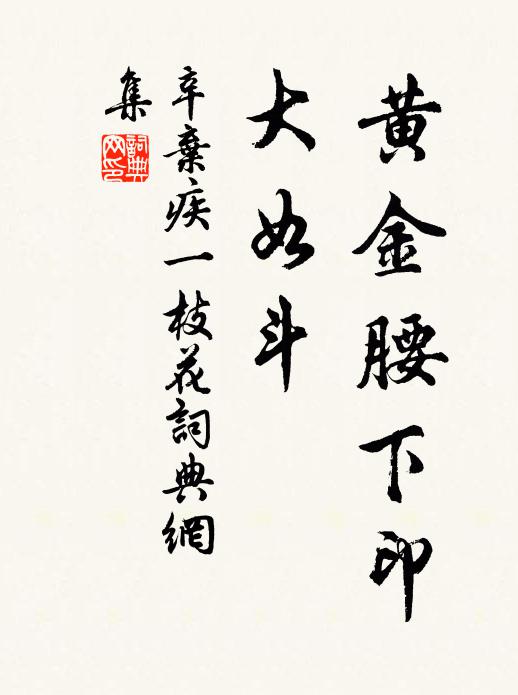 黃金腰下印
大如斗
辛棄疾一枝花詞典網
集
詞典
网印